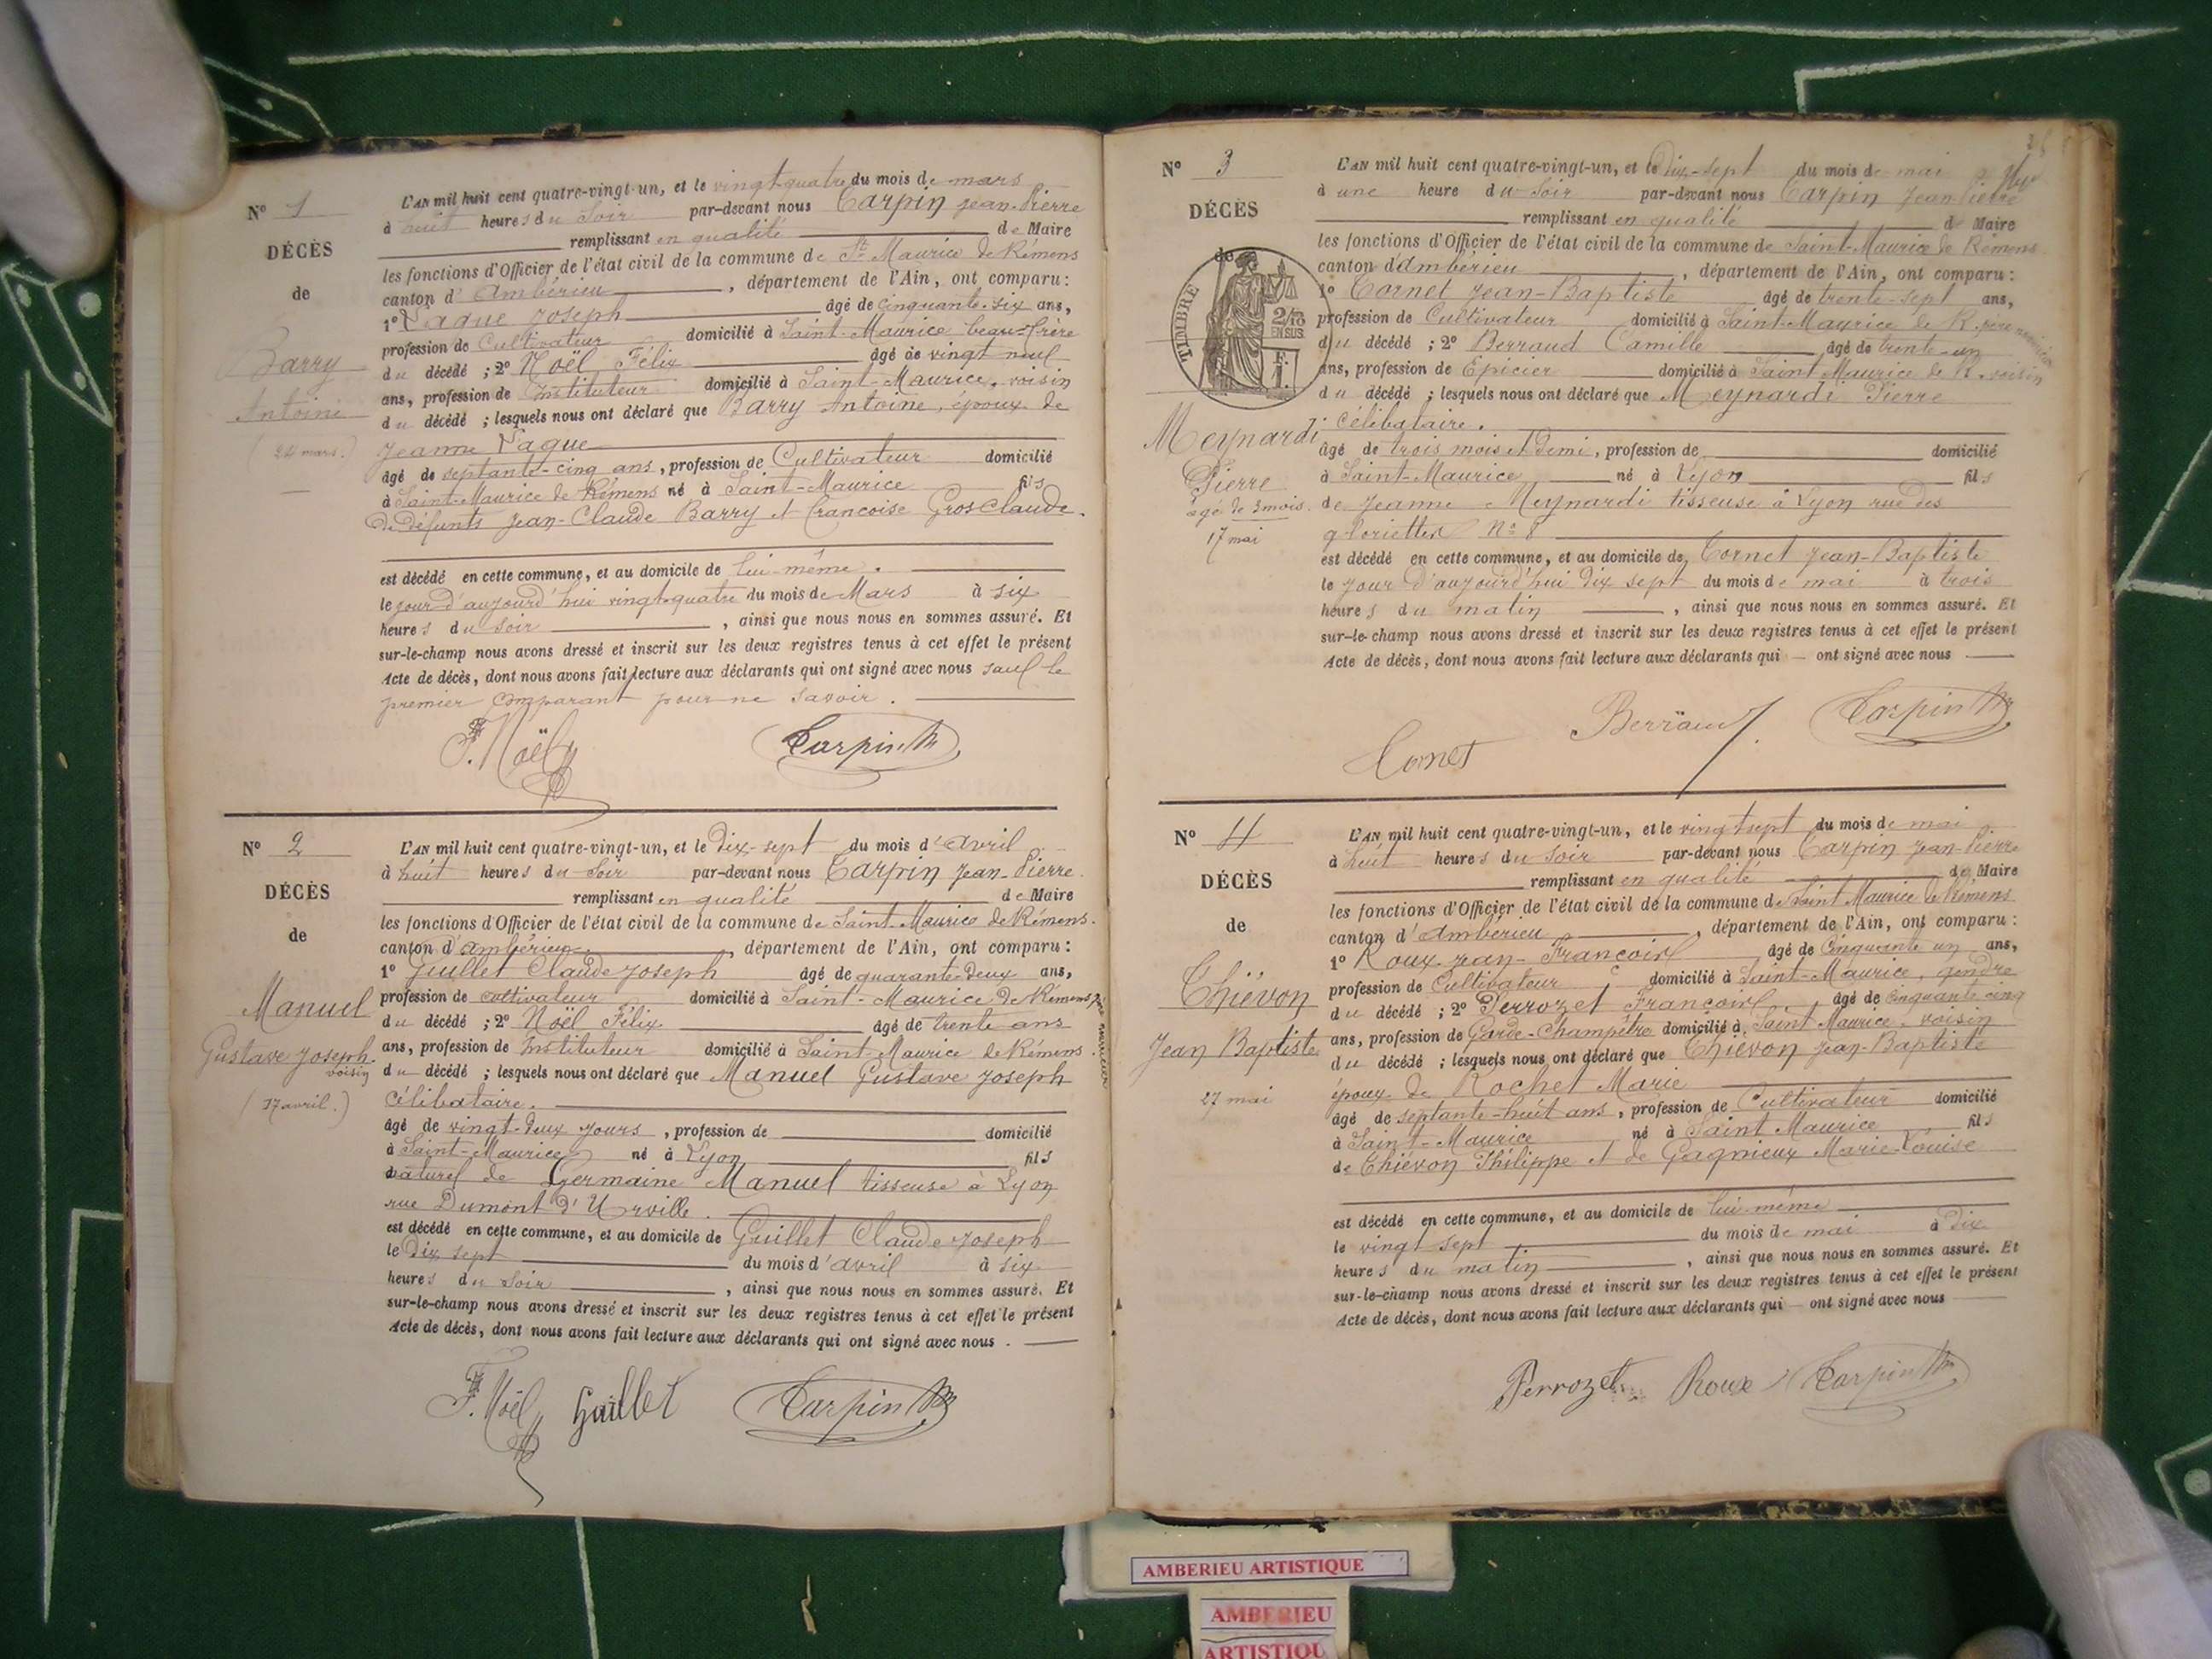 N° 1
DÉCÈS
de
Barry
Antoine
(24 mars.)
L'AN mil huit cent quatre-vingt-un, et le vingt-quatre du mois de mars
à huit heures du Soir par-devant nous Carpin Jean-Pierre
remplissant en qualité de Maire
les fonctions d'Officier de l'état civil de la commune de St Maurice de Rémens
canton d'Ambérieu, département de l'Ain, ont comparu:
1° Vague Joseph âgé de cinquante-six ans,
profession de Cultivateur domicilié à Saint-Maurice beau-frère
du décédé ; 2° Noël Félix âgé de vingt neuf
ans, profession de Instituteur domicilié à Saint-Maurice, voisin
du décédé ; lesquels nous ont déclaré que Barry Antoine, époux de
Jeanne Vague
âgé de septante-cinq ans, profession de Cultivateur domicilié
à Saint-Maurice de Rémens né à Saint-Maurice fils
de défunts Jean-Claude Barry et Françoise Grosclaude.
est décédé en cette commune, et au domicile de lui-même.
le jour d'aujourd'hui vingt-quatre du mois de Mars à six
heures du soir, ainsi que nous nous en sommes assuré. Et
sur-le-champ nous avons dressé et inscrit sur les deux registres tenus à cet effet le présent
Acte de décès, dont nous avons fait lecture aux déclarants qui ont signé avec nous sauf le
premier comparant pour ne savoir.
F. Noël Carpin M
N° 2
DÉCÈS
de
Manuel
Gustave Joseph.
voisin
(17 avril.)
L'AN mil huit cent quatre-vingt-un, et le Dix-sept du mois d'avril
à huit heures du Soir par-devant nous Carpin Jean-Pierre.
remplissant en qualité de Maire
les fonctions d'Officier de l'état civil de la commune de Saint-Maurice de Rémens.
canton d'ambérieu, département de l'Ain, ont comparu:
1° Guillet Claude Joseph âgé de quarante-deux ans,
profession de cultivateur domicilié à Saint-Maurice de Rémens père nourricier
du décédé ; 2° Noël Félix âgé de trente ans
ans, profession de Instituteur domicilié à Saint-Maurice de Rémens.
du décédé ; lesquels nous ont déclaré que Manuel Gustave Joseph
Célibataire.
âgé de vingt-deux jours, profession de domicilié
à Saint-Maurice né à Lyon fils
naturel de Germaine Manuel tisseuse à Lyon
rue Dumont d'Urville.
est décédé en cette commune, et au domicile de Guillet Claude Joseph
le Dix sept du mois d'avril à six
heures du soir, ainsi que nous nous en sommes assuré. Et
sur-le-champ nous avons dressé et inscrit sur les deux registres tenus à cet effet le présent
Acte de décès, dont nous avons fait lecture aux déclarants qui ont signé avec nous.
F. Noël Guillet Carpin M
N° 3
DÉCÈS
de
TIMBRE
2/10
EN SUS
F. 1.
Meynardi
Pierre
âgé de 3 mois.
17 mai
L'AN mil huit cent quatre-vingt-un, et le Dix-sept du mois de mai
à une heure du Soir par-devant nous Carpin Jean-Pierre
remplissant en qualité de Maire
les fonctions d'Officier de l'état civil de la commune de Saint-Maurice de Rémens
canton d'Ambérieu, département de l'Ain, ont comparu:
1° Cornet Jean-Baptiste âgé de trente-sept ans,
profession de Cultivateur domicilié à Saint-Maurice de R. père nourricier
du décédé ; 2° Berraud Camille âgé de trente-un
ans, profession de Epicier domicilié à Saint Maurice de R. voisin
du décédé ; lesquels nous ont déclaré que Meynardi Pierre
Célibataire.
âgé de trois mois et demi, profession de domicilié
à Saint-Maurice né à Lyon fils
de Jeanne Meynardi tisseuse à Lyon rue des
gloriettes N° 8
est décédé en cette commune, et au domicile de Cornet Jean-Baptiste
le jour d'aujourd'hui Dix sept du mois de mai à trois
heures du matin, ainsi que nous nous en sommes assuré. Et
sur-le-champ nous avons dressé et inscrit sur les deux registres tenus à cet effet le présent
Acte de décès, dont nous avons fait lecture aux déclarants qui ont signé avec nous
Cornet Berraud Carpin M
N° 4
DÉCÈS
de
Thiévon
Jean Baptiste
27 mai
L'AN mil huit cent quatre-vingt-un, et le vingt sept du mois de mai
à huit heures du Soir par-devant nous Carpin Jean-Pierre
remplissant en qualité de Maire
les fonctions d'Officier de l'état civil de la commune de Saint Maurice de Rémens
canton d'Ambérieu, département de l'Ain, ont comparu:
1° Roux Jean-François âgé de Cinquante un ans,
profession de Cultivateur domicilié à Saint-Maurice, gendre
du décédé ; 2° Perrozet François âgé de cinquante cinq
ans, profession de Garde-Champêtre domicilié à Saint Maurice, voisin
du décédé ; lesquels nous ont déclaré que Thiévon Jean-Baptiste
époux de Rochet Marie
âgé de septante-huit ans, profession de Cultivateur domicilié
à Saint-Maurice né à Saint Maurice fils
de Thiévon Philippe et de Gagnieux Marie-Louise
est décédé en cette commune, et au domicile de lui-même
le vingt sept du mois de mai à Dix
heures du matin, ainsi que nous nous en sommes assuré. Et
sur-le-champ nous avons dressé et inscrit sur les deux registres tenus à cet effet le présent
Acte de décès, dont nous avons fait lecture aux déclarants qui ont signé avec nous
Perrozet Roux Carpin M
AMBERIEU ARTISTIQUE
AMBERIEU
ARTISTIQU